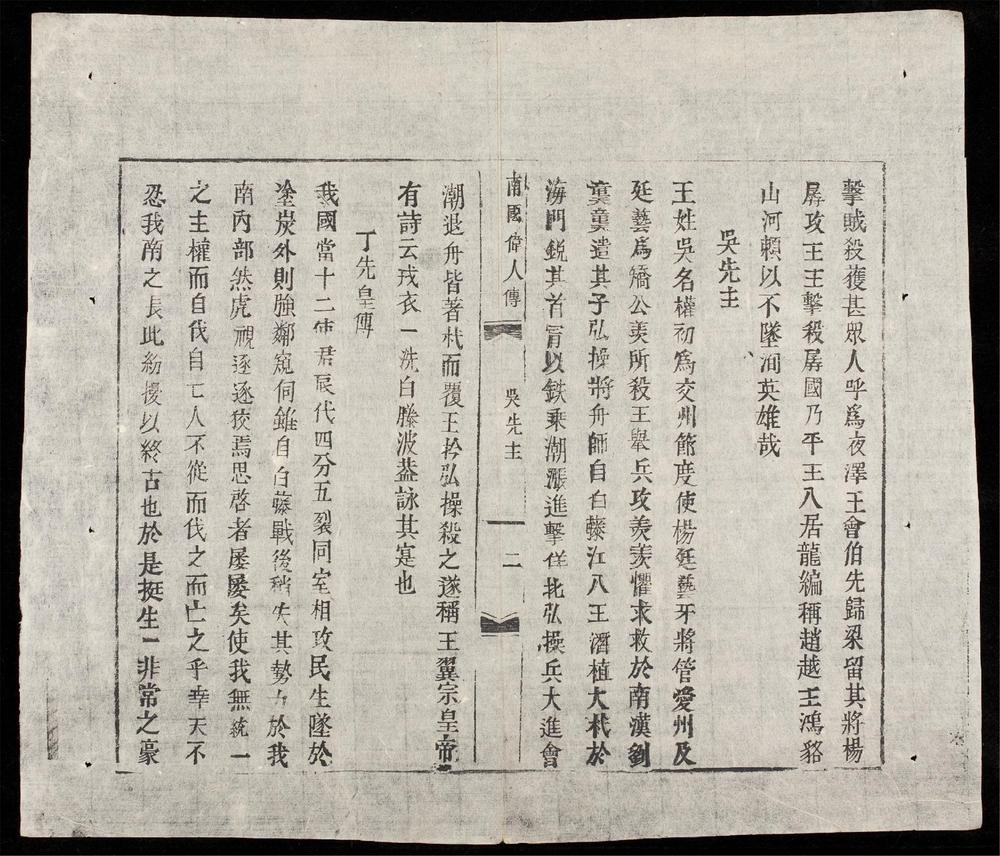 擊賊殺獲甚眾人呼爲夜澤王會伯先歸梁留其將楊
孱攻王王擊殺孱國乃平王入居龍編稱趙越王鴻貉
山河頼以不墜洵英雄哉
吳先主
王姓吳名權初爲交州節度使楊廷藝牙將管愛州及
延藝爲矯公羡所殺王舉兵攻羡羡懼求救於南漢劉
龑龑遣其子弘操將舟師自白藤江入王潛植大杙於
海門銳其首冐以鉄乘潮漲進擊佯北弘操兵大進會
南國偉人傳
吳先主
二
潮退舟皆著杙而覆王扲弘操殺之遂稱王翼宗皇帝
有詩云戎衣一洗白籐波葢詠其寔也
丁先皇傳
我國當十二使君辰代四分五裂同室相攻民生墜於
塗炭外則強鄰窺伺雖自白藤戰後稍失其勢力於我
南內部然虎視逐逐狡焉思啓者屡屡矣使我無統一
之主權而自伐自亡人不從而伐之而亡之乎幸天不
忍我南之長此紛擾以終古也於是挺生一非常之豪